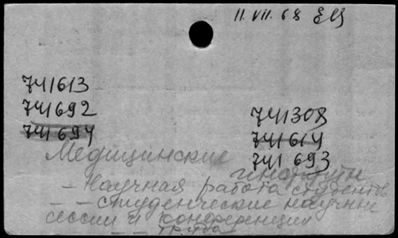 11. VII. 68
741613
741692
741694
741308
741614
741693
Медицинские институты
— Научная работа студентов
— — Студенческие научные
сессии и конференции
— — труды